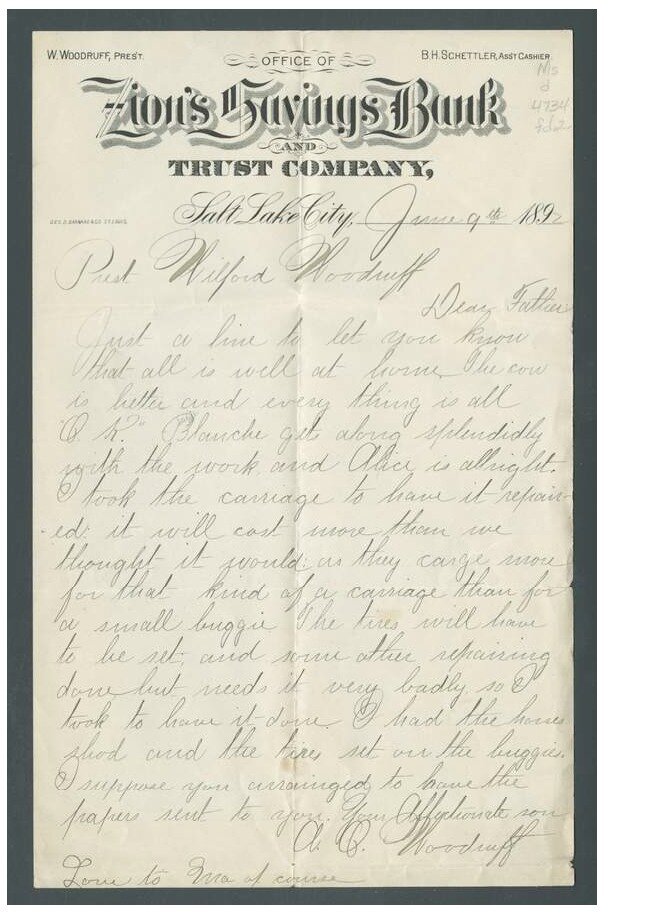 W. WOODRUFF, PRES'T.
OFFICE OF
B.H. SCHETTLER, ASST CASHIER.
Ms
d
4734
fd 2
Zion's Savings Bank
AND
TRUST COMPANY,
GEO. D. BARNARD & CO. ST. LOUIS.
Salt Lake City, June 9th 1892
Prest Wilford Woodruff
Dear Father
Just a line to let you know
that all is well at home. The cow
is better and every thing is all
"O K." Blanche get along splendidly
with the work and Alice is allright.
I took the carriage to have it repair-
ed: it will cost more than we
thought it would: as they carge more
for that kind of a carriage than for
a small buggie. The tires will have
to be set; and some other repairing
done but needs it very badly so I
took to have it done. I had the horses
shod and the tires set on the buggie.
I suppose you arrainged to have the
papers sent to you. Your Affectionate son
A. O. Woodruff
Love to Ma of course